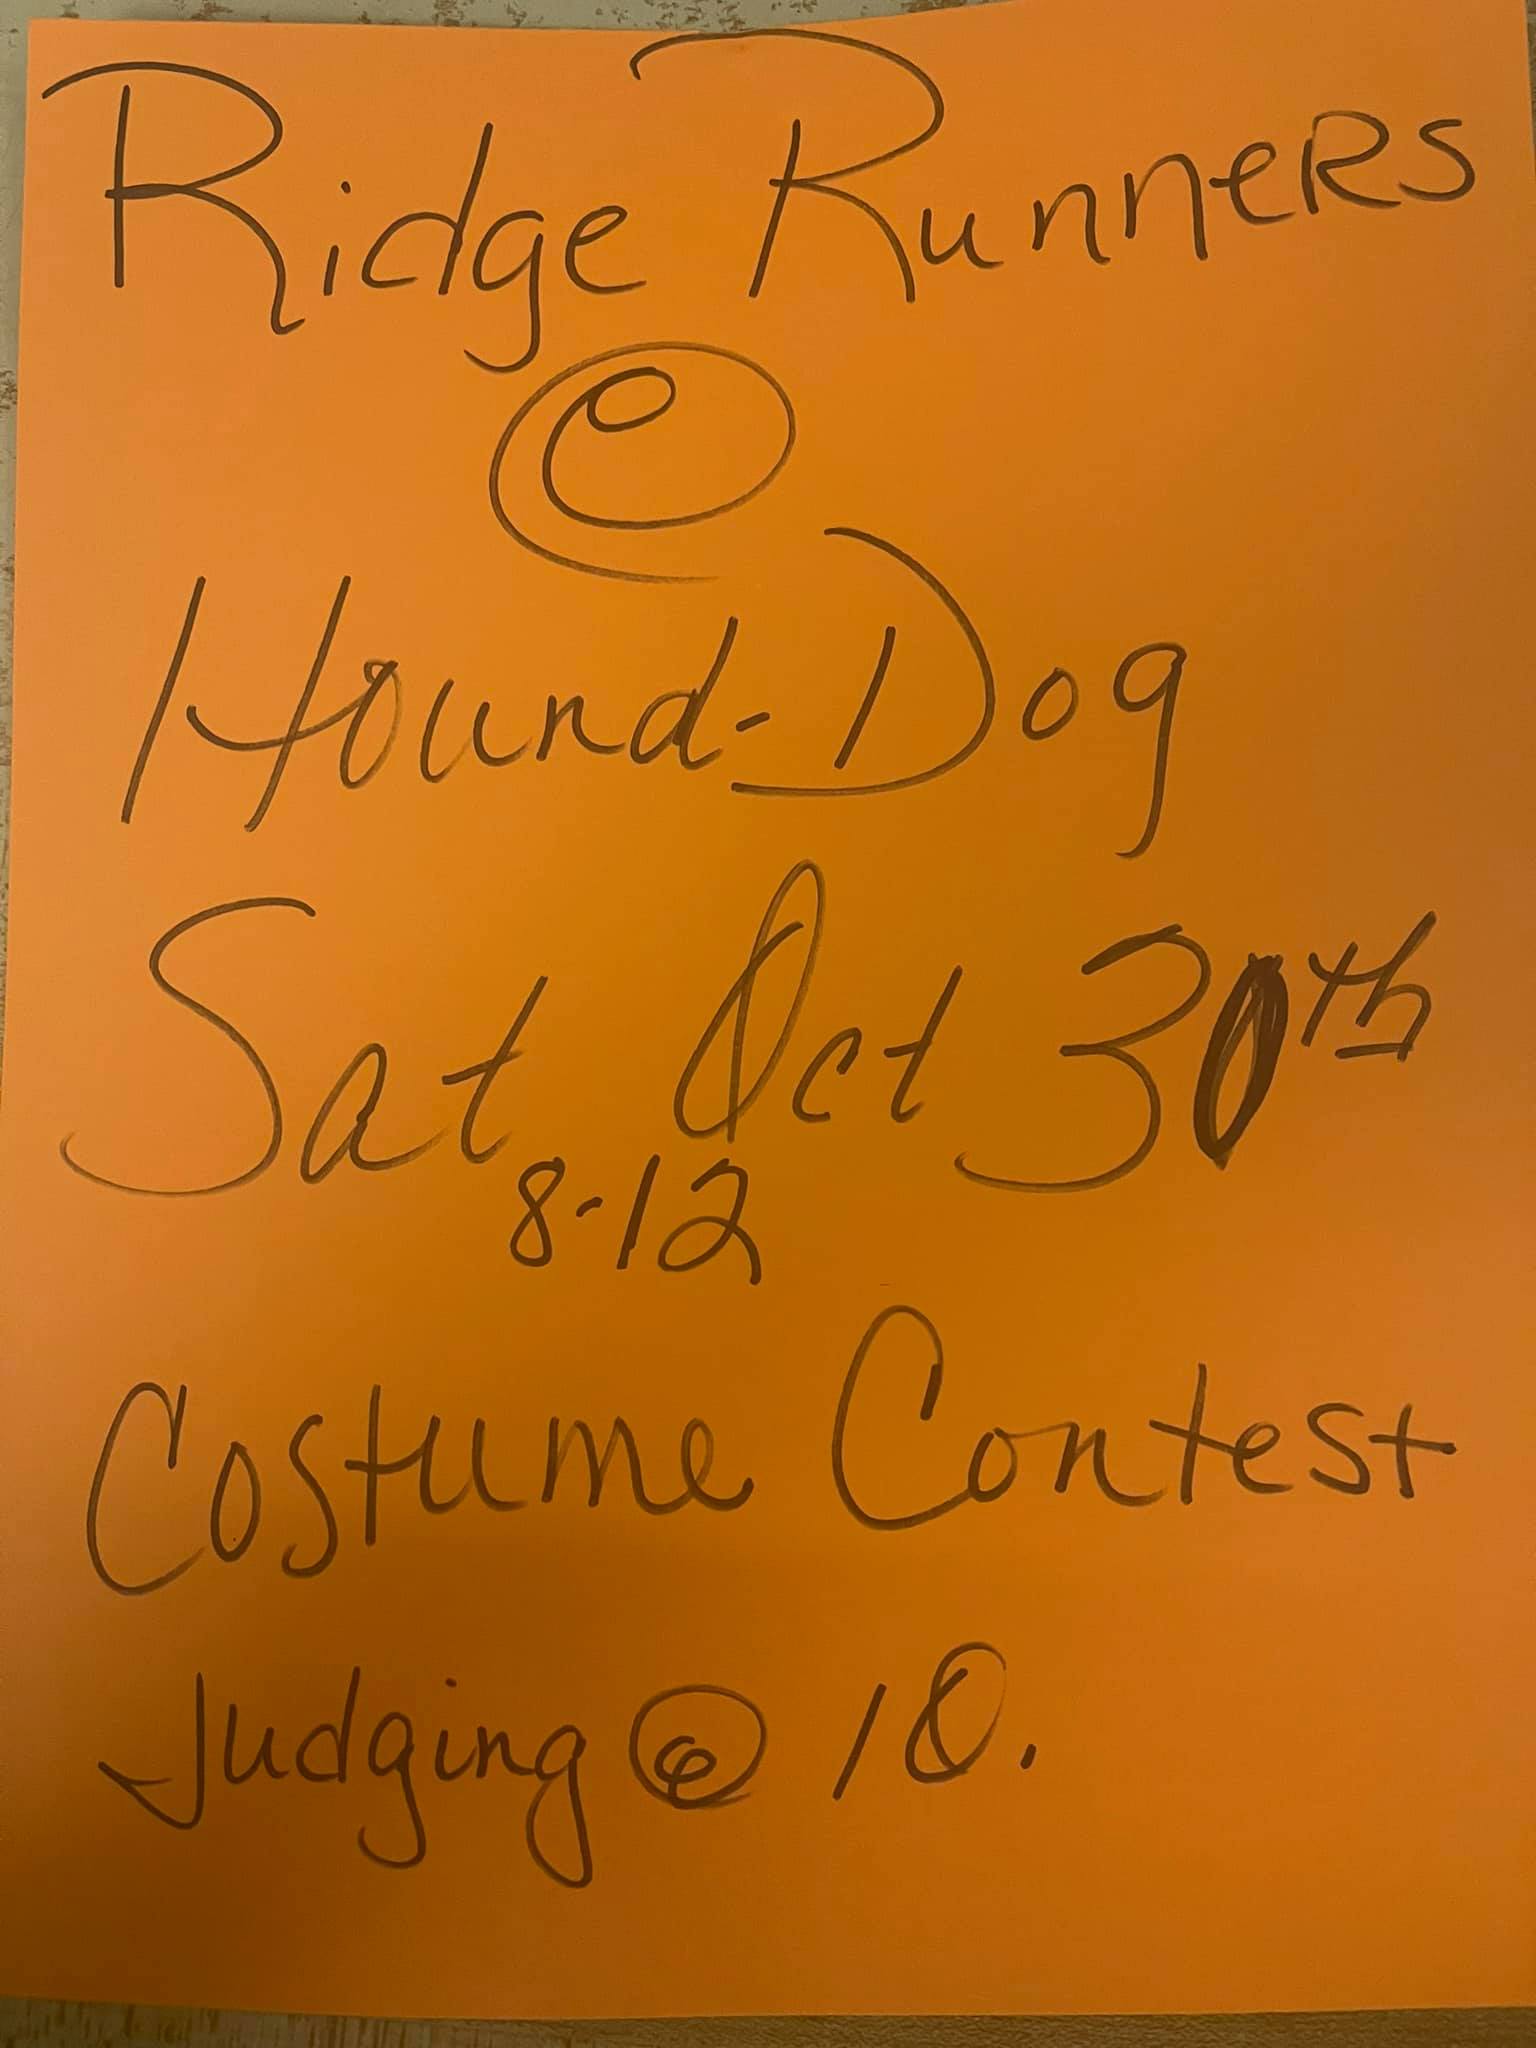 Ridge Runners
@
Hound-Dog
Sat Oct 30th
8-12
Costume Contest
Judging @ 10.